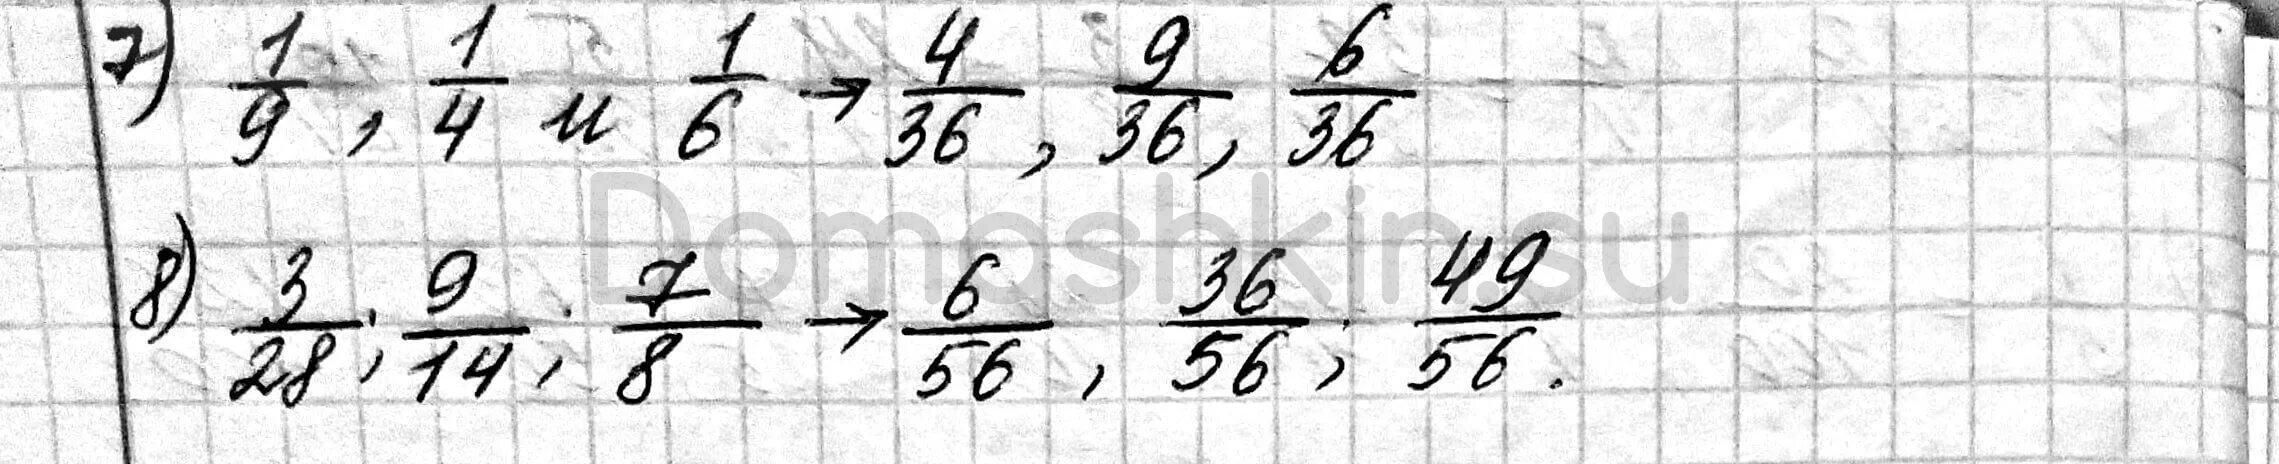 7) 1/9, 1/4 и 1/6 → 4/36, 9/36, 6/36
Domashkin.su
8) 3/28; 9/14; 7/8 → 6/56, 36/56; 49/56.